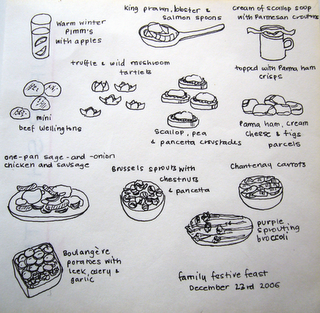 warm winter
Pimm's
with apples
king prawn, lobster &
salmon spoons
cream of scallop soup
with Parmesan croutons
topped with Parma ham
crisps
truffle & wild mushroom
tartlets
mini
beef wellingtons
Scallop, pea
& pancetta croustades
Parma ham, cream
cheese & figs
parcels
one-pan sage-and-onion
chicken and sausage
Brussels sprouts with
chestnuts
& pancetta
Chantenay carrots
purple
sprouting
broccoli
Boulangère
potatoes with
leek, celery &
garlic
family festive feast
December 23rd 2006